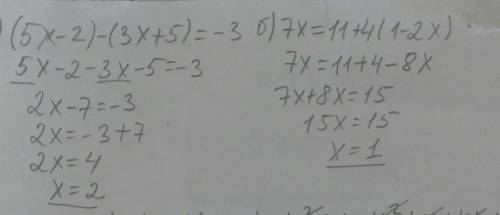 ) (5x-2)-(3x+5)=-3
5x-2-3x-5=-3
2x-7=-3
2x=-3+7
2x=4
x=2
б) 7x=11+4(1-2x)
7x=11+4-8x
7x+8x=15
15x=15
x=1